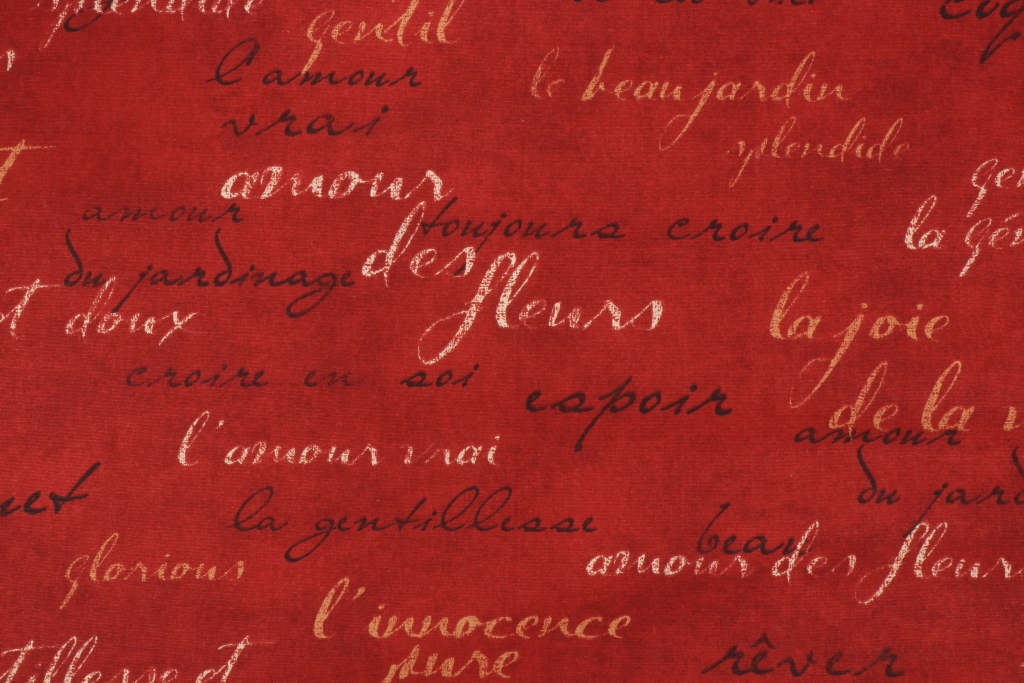 splendide
gentil
l'amour
vrai
le beau jardin
splendide
amour
amour
toujours croire
la
du jardinage
des
fleurs
doux
la joie
croire en soi
espoir
de la
amour
l'amour vrai
du
la gentillesse
beau
glorious
amour des fleurs
l'innocence
pure
rêver
et